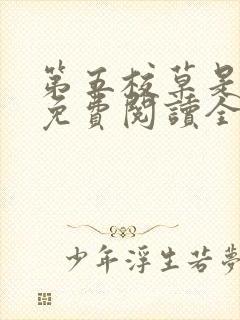 第五校草是
免費閱讀全
少年浮生若夢